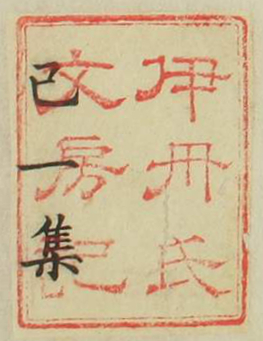 伊丹氏
文房記
己一集